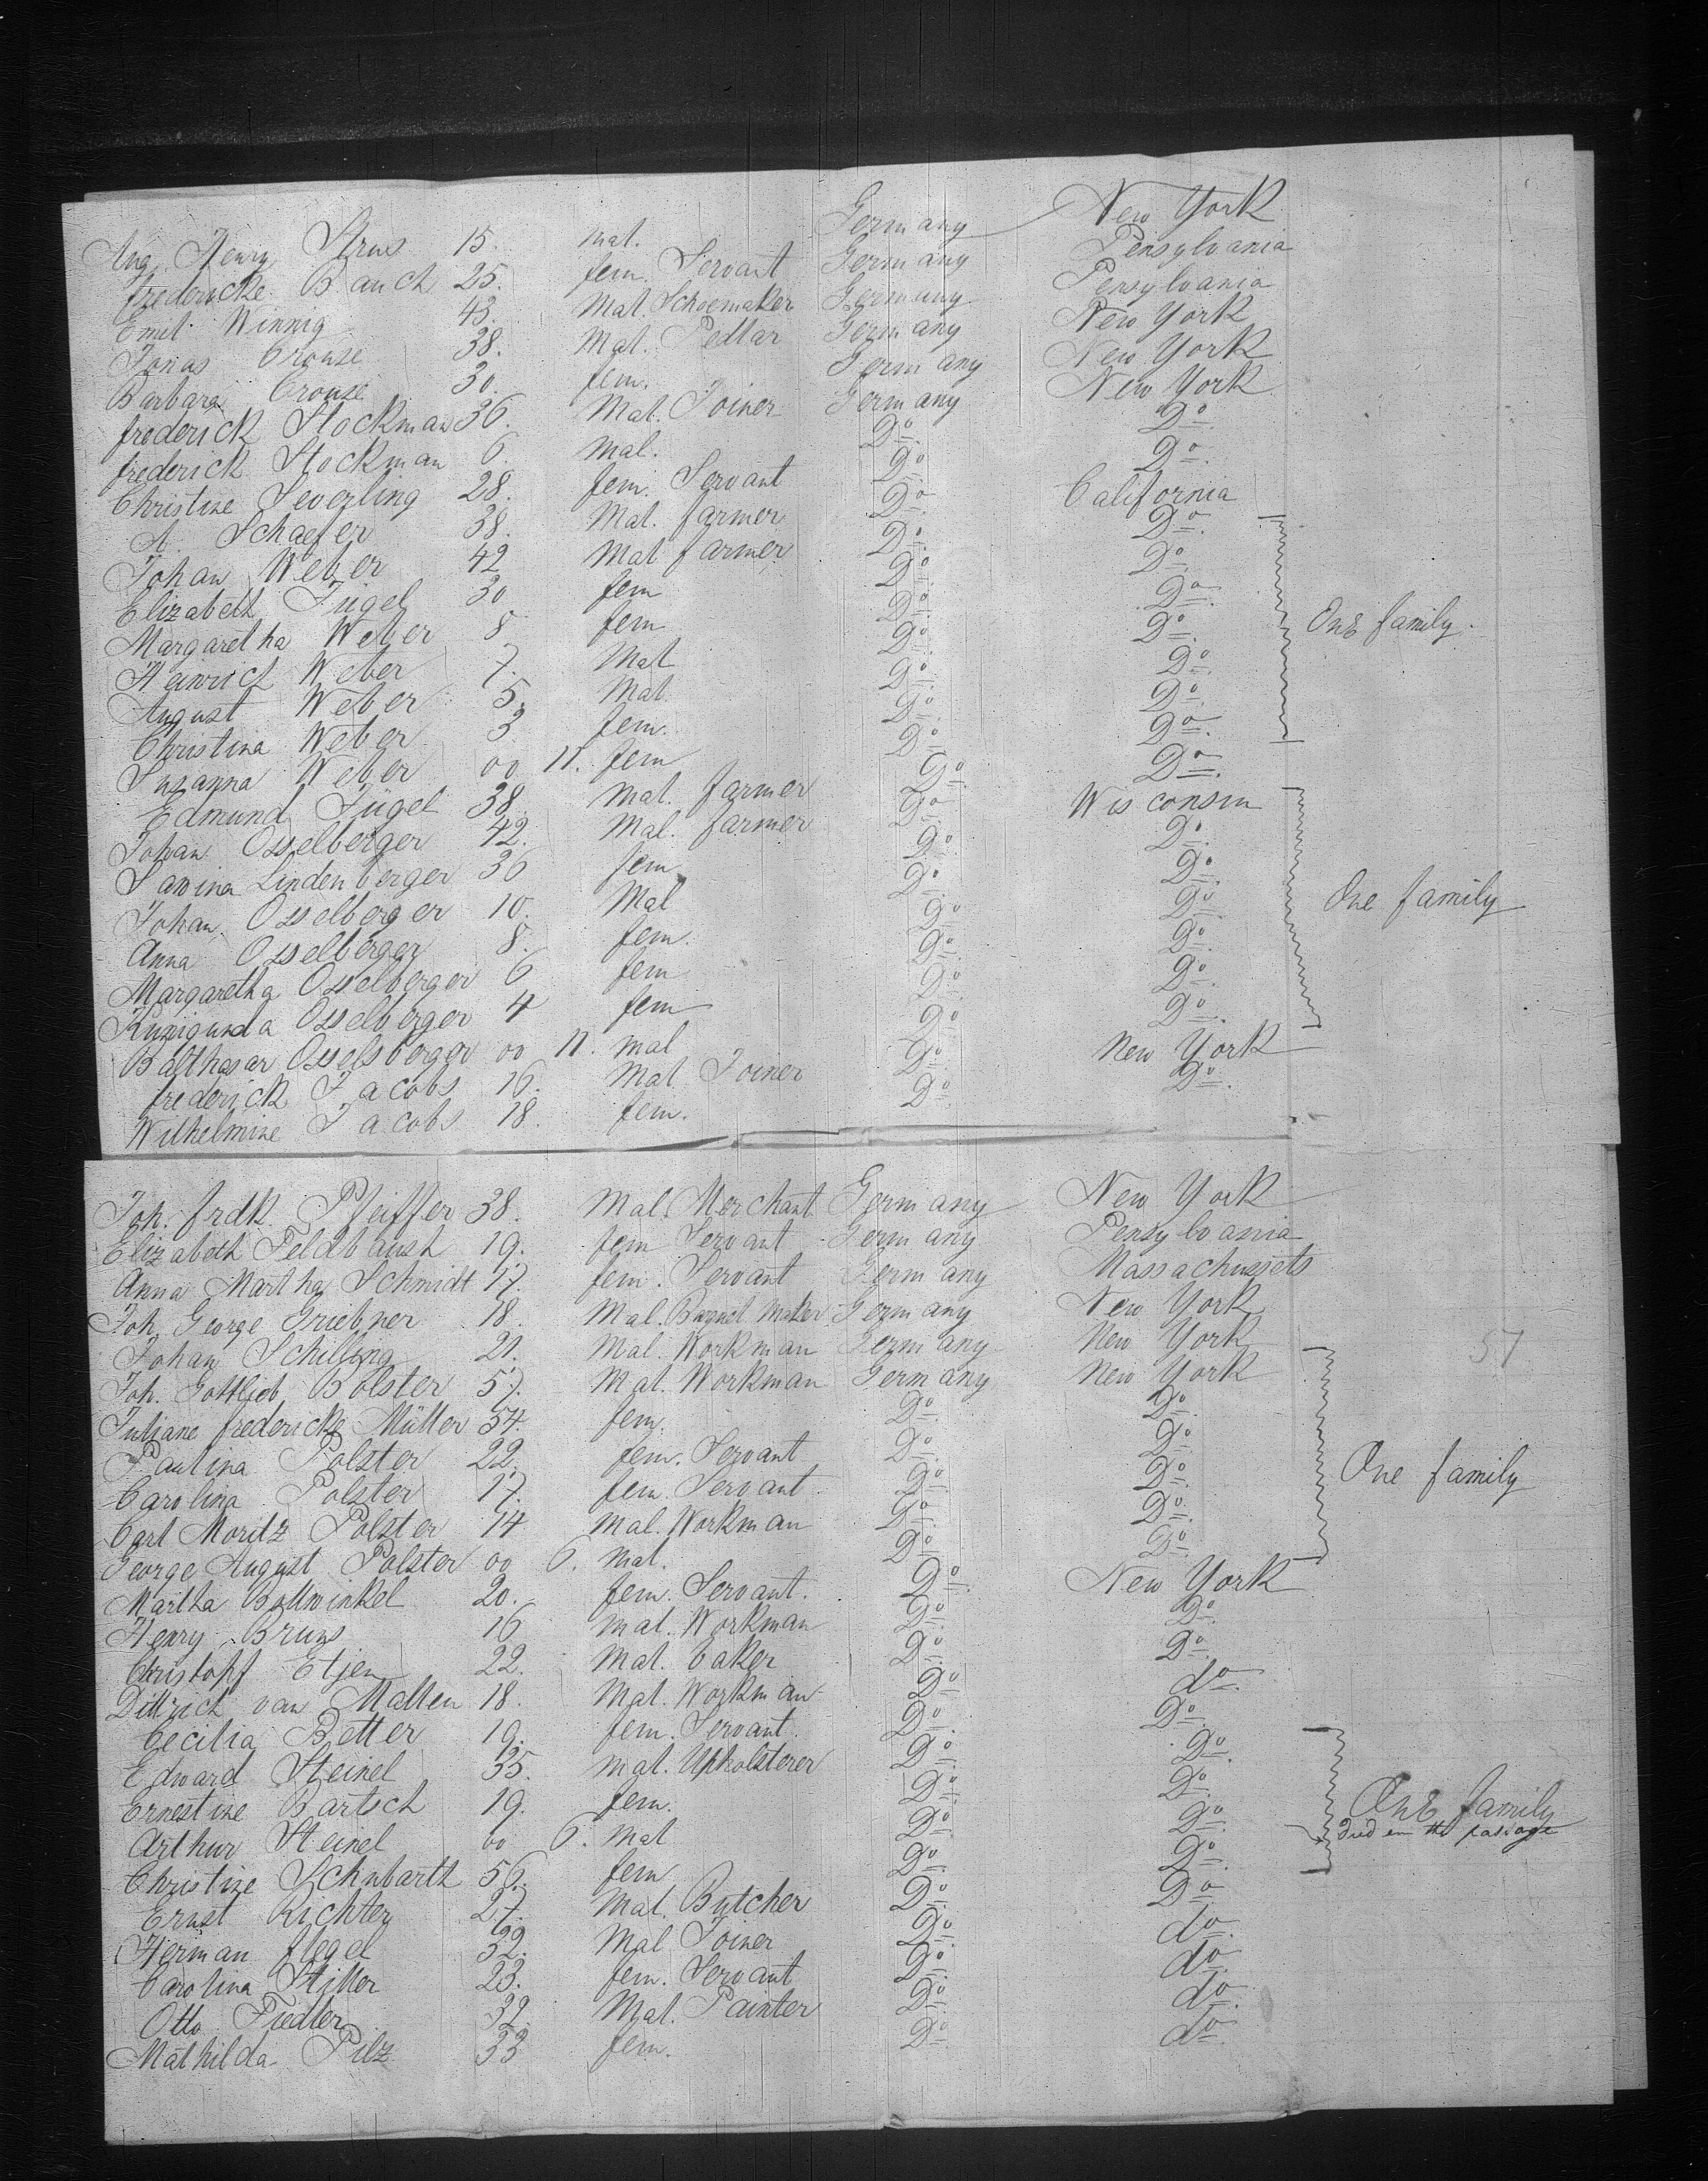 Aug. Henry Strus 15. Mal. Germany New York
fredericke Bauch 25. fem. Servant Germany Pensylvania
Emil Winnig 43. Mal. Schoemaker Germany Pensylvania
Jonas Crouse 38. Mal. Pedlar Germany New York
Barbara Crouse 30. fem. Germany New York
frederick Stockman 36. Mal. Joiner Germany New York
frederick Stockman 6. Mal. Do. Do.
Christine Severling 28. fem. Servant Do. Do.
A. Schaefer 38. Mal. farmer Do. California
Johan Weber 42 Mal farmer Do. Do.
Elizabeth Jügel 30 fem Do. Do.
Margaretha Weber 8 fem Do. Do. One family.
Heinrich Weber 7. Mal Do. Do.
August Weber 5. Mal. Do. Do.
Christina Weber 3 fem. Do. Do.
Suzanna Weber 00 11. fem Do. Do.
Edmund Jügel 38. Mal. farmer Do. Do.
Johan Osselberger 42. Mal. farmer Do. Wisconsin
Sawina Lindenberger 36 fem. Do. Do.
Johan. Osselberger 10. Mal Do. Do.
Anna Osselberger 8. fem. Do. Do. One family
Margaretha Osselberger 6 fem Do. Do.
Kunigunda Osselberger 4 fem Do. Do.
Balthasar Osselsberger 00 11. mal Do. Do.
frederick Jacobs 16. Mal. Joiner Do. New York
Wilhelmine Jacobs 18. fem. Do. Do.
Joh. frdk. Pfeiffer 38. Mal. Merchant Germany New York
Elizabeth Feldbausch 19. fem Servant Germany Pensylvania
Anna Martha Schmidt 17. fem. Servant Germany Massachussets
Joh. George Griebner 18. Mal. Maker Germany New York
Johan Schilling 21. Mal. Workman Germany New York 57
Joh. Gottlieb Bolster 57. Mal. Workman Germany New York
Juliane fredericke Müller 54. fem. Do. Do.
Paulina Polster 22. fem. Servant Do. Do.
Carolina Polster 17. fem. Servant Do. Do. One family
Carl Moritz Polster 14 Mal. Workman Do. Do.
George August Polster 00 6. Mal. Do. Do.
Martha Bollwinkel 20. fem. Servant. Do. New York
Henry Bruns 16 Mal. Workman Do. Do.
Christopf Etjen 22. Mal. baker Do. Do.
Dittrich van Malten 18. Mal. Workman Do. do.
Cecilia Better 19. fem. Servant. Do. Do.
Edward Steinel 35. Mal. Upholsterer Do. Do.
Ernestine Bartsch 19. fem. Do. Do. One family
Arthur Steinel 00 6. Mal Do. Do. Died on the passage
Christine Schubarth 56. fem Do. Do.
Ernst Richter 27. Mal. Butcher Do. Do.
Herman flegel 32. Mal Joiner Do. do.
Carolina Stiller 23. fem. Servant Do. do.
Otto Fiedler 32. Mal. Painter Do. do.
Mathilda Pilz 33 fem. Do. do.